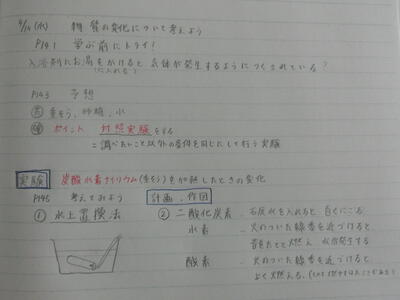 4/14(水) 物質の変化について考えよう
P141 学ぶ前にトライ!
入浴剤にお湯をかけると気体が発生するようにつくされている?
(に入れる)
P143 予想
重そう、砂糖、水
ポイント 対照実験をする
=調べたいこと以外の条件を同じにして行う実験
実験 炭酸水素ナトリウム(重そう)を加熱したときの変化
P145 考えてみよう 計画、作図
① 水上置換法 ② 二酸化炭素 - 石灰水を入れると白くにごる
水素 - 火のついた線香を近づけると
音をたてて燃え 水が発生する
酸素 - 火のついた線香を近づけると
よく燃える。